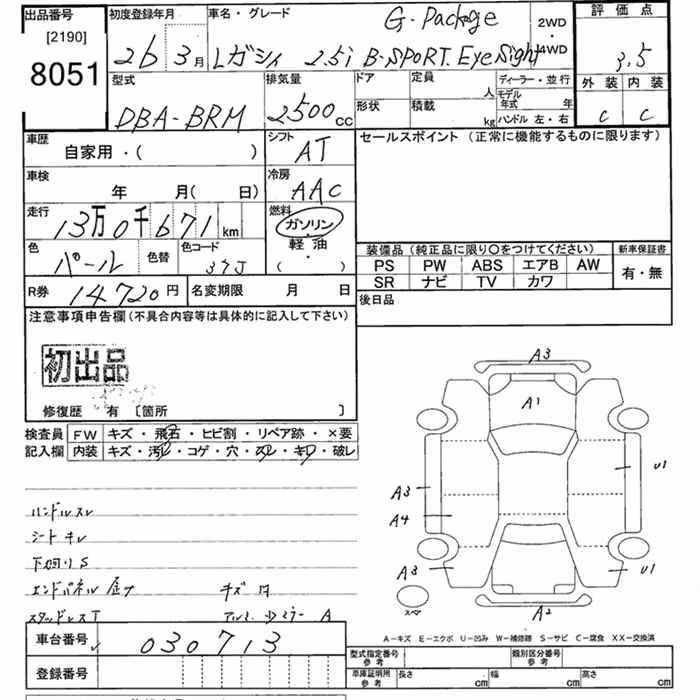 出品番号
[2190]
8051
初度登録年月
26 3月
車名・グレード
G-Package
Lガシィ 2.5i B-SPORT EyeSight
2WD
・
4WD
評価点
3.5
外装 内装
C C
型式
DBA-BRM
排気量
2500cc
ドア
定員
人
形状
積載
kg
ディーラー・並行
モデル年式 年
ハンドル 左・右
車歴
自家用・( )
シフト
AT
車検
年 月( 日)
冷房
AAC
走行
13万0千671km
燃料
ガソリン・
軽油・
( )
色
パール
色替
色コード
37J
R券
14720円
名変期限 月 日
セールスポイント (正常に機能するものに限ります)
装備品(純正品に限り○をつけてください)
PS PW ABS エアB AW
SR ナビ TV カワ
新車保証書
有・無
後日品
注意事項申告欄(不具合内容等は具体的に記入して下さい)
初出品
修復歴 有 〔箇所 〕
検査員
記入欄
FW キズ・飛石・ヒビ割・リペア跡・×要
内装 キズ・汚レ・コゲ・穴・スレ・キレ・破レ
ハンドルスレ
シートキレ
下廻りS
エンドパネル
キズ 凹
スタッドレスT
アルミ ミラー A
A3
A1
A3
A4
A3
U1
U1
A2
スペア
A-キズ E-エクボ U-凹み W-補修跡 S-サビ C-腐食 XX-交換済
車台番号
030713
登録番号
型式指定番号
参考
類別区分番号
参考
車庫証明用
参考
長さ cm
幅 cm
高さ cm